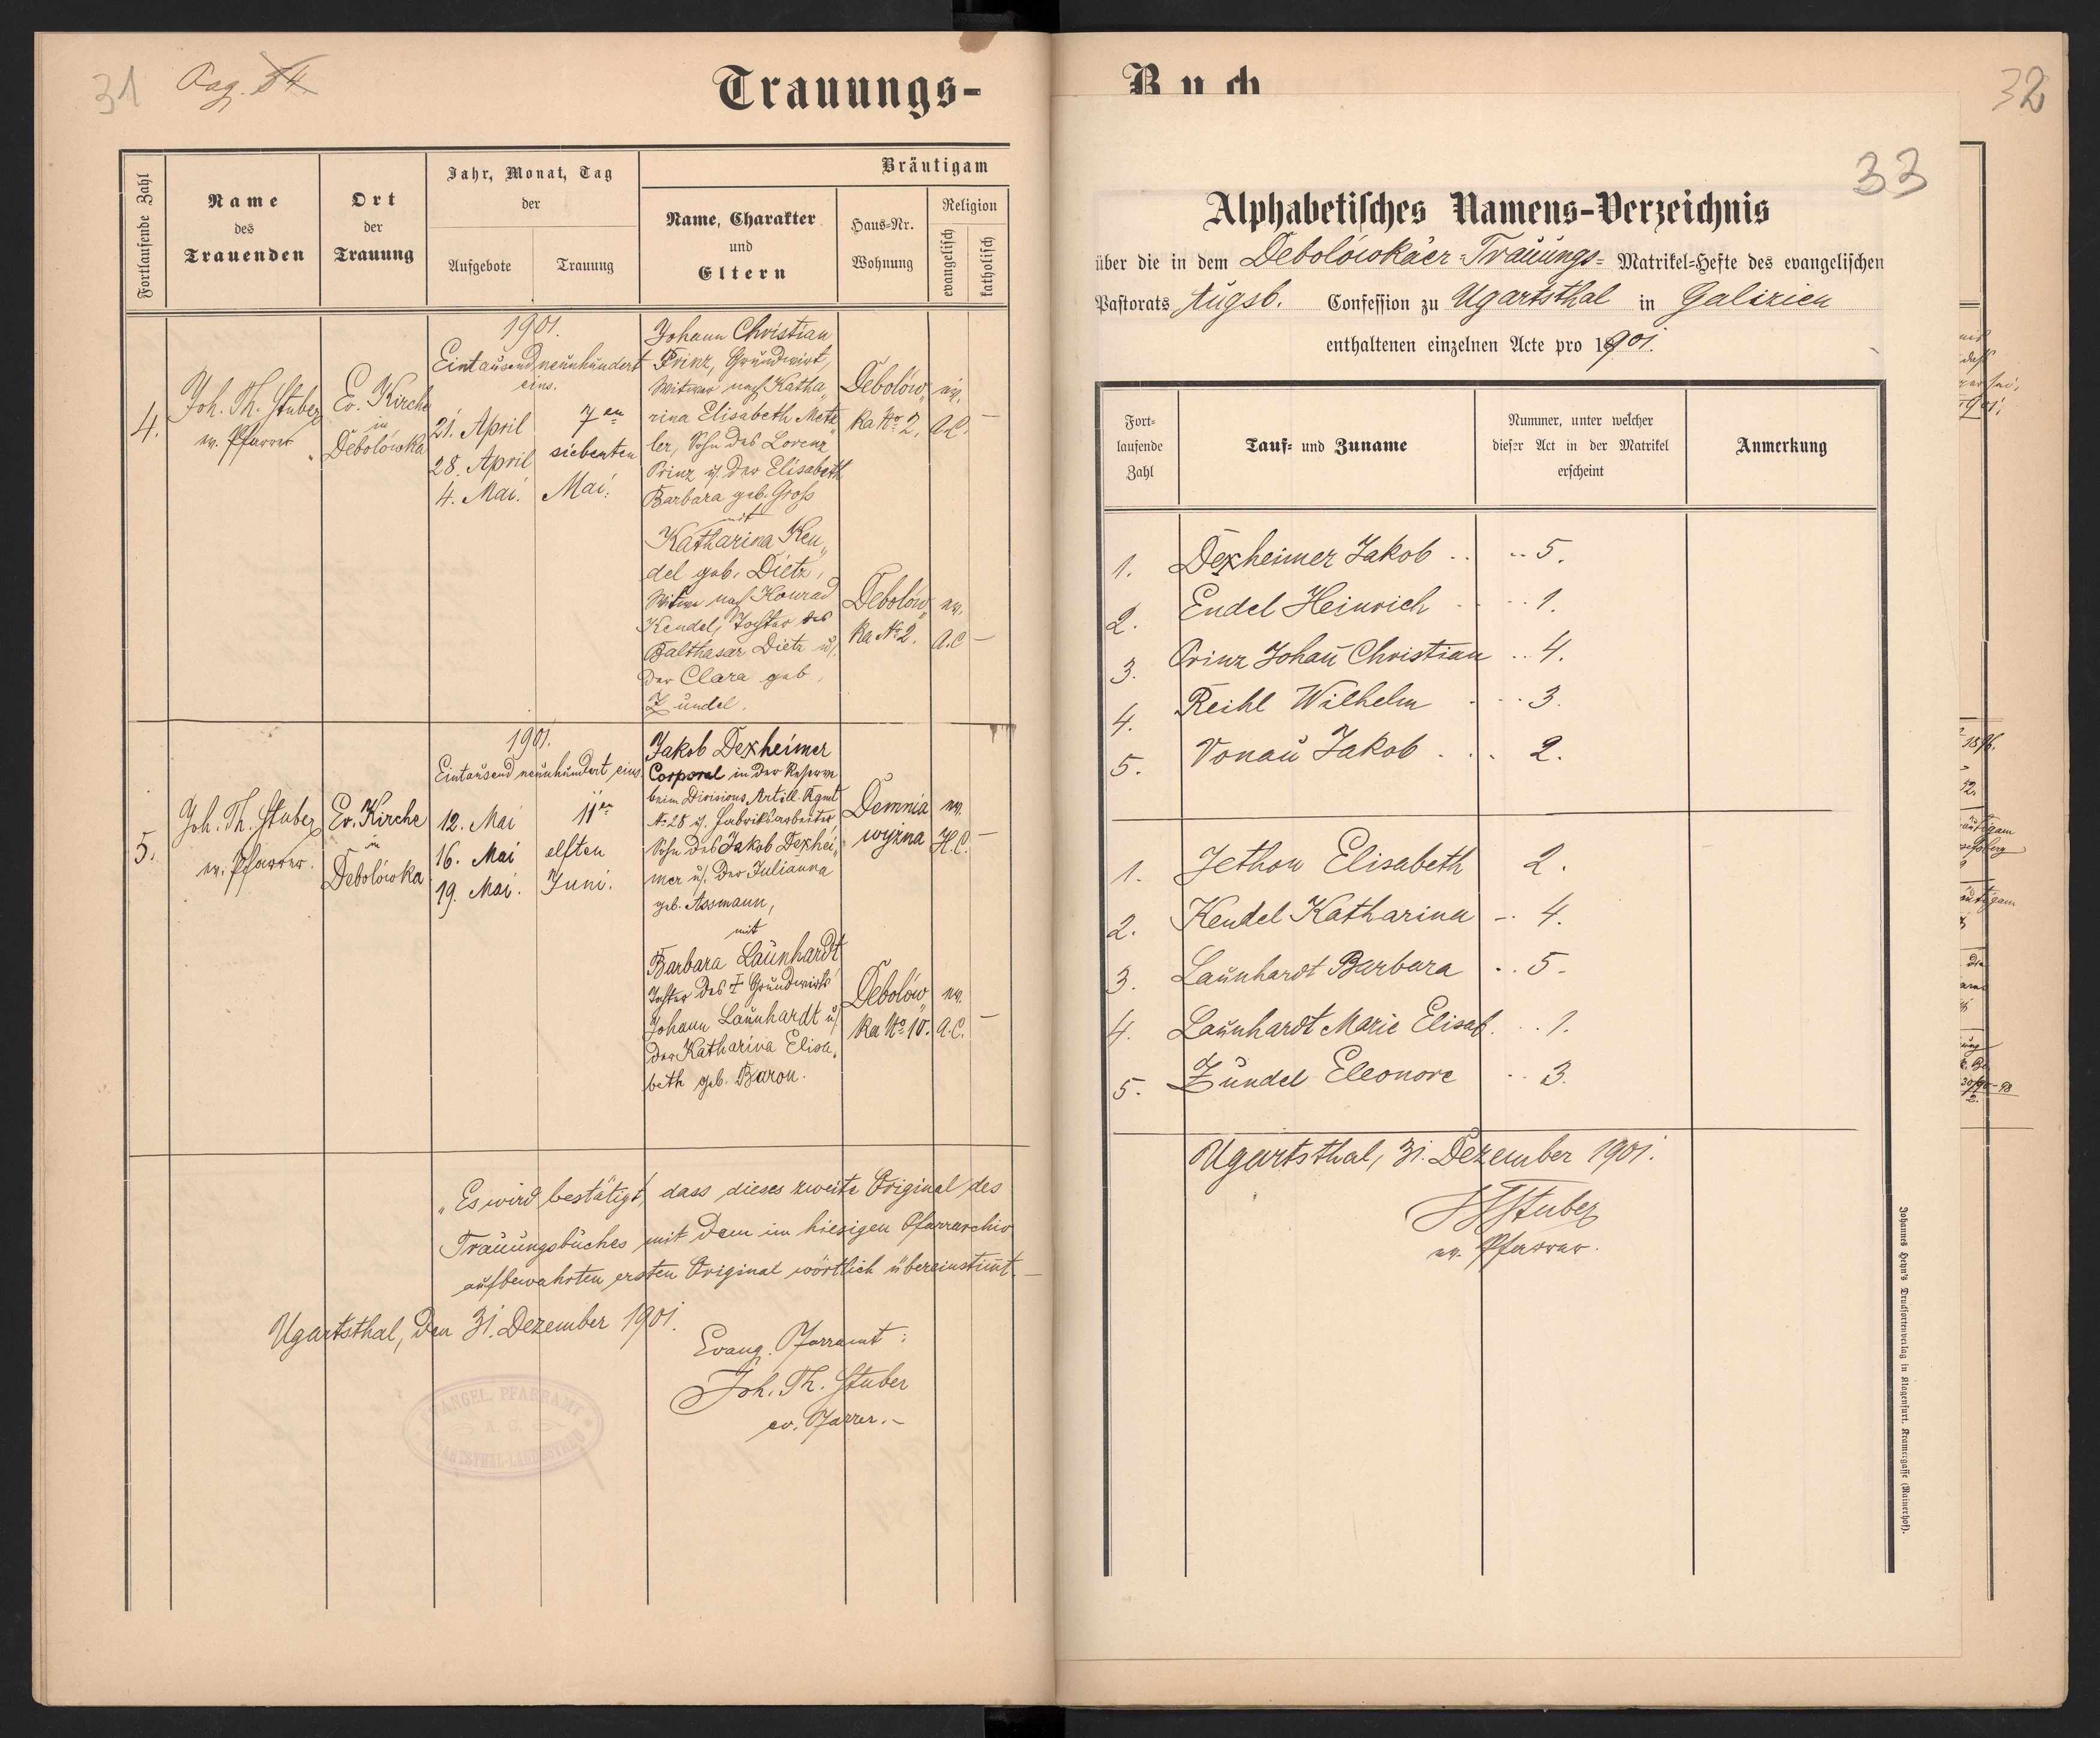 31 Pag. 54.
Trauungs-
Fortlaufende Zahl
Name
des
Trauenden
Ort
der
Trauung
Jahr, Monat, Tag
der
Aufgebote
Trauung
Bräutigam
Name, Charakter
und
Eltern
Haus-Nr.
Wohnung
Religion
evangelisch
katholisch
4.
Joh. Th. Stuber
ev. Pfarrer
Ev. Kirche
in
Debolówka
1901.
Eintausend neunhundert
eins.
21. April
28. April
4. Mai.
7en
siebenten
Mai.
Johann Christian
Prinz, Grundwirt,
Witwer nach Katha„
rina Elisabeth Metz„
ler, Sohn des Lorenz
Prinz u. der Elisabeth
Barbara geb. Gross
mit
Katharina Ken„
del geb. Dietz,
Witwe nach Konrad
Kendel, Tochter des
Balthasar Dietz u.
der Clara geb.
Zündel.
Debolów„
ka No 2.
ev.
A.C.
—
Debolów„
ka No 2.
ev.
A.C
—
5.
Joh. Th. Stuber
ev. Pfarrer.
Ev. Kirche
in
Debolówka
1901.
Eintausend neunhundert eins.
12. Mai
16. Mai
19. Mai.
11en
elften
Juni.
Jakob Dexheimer
Corporal in der Reserve
beim Divisions Artill. Rgmt
No 28 u. Fabriksarbeiter
Sohn des Jakob Dexhei„
mer u. der Julianna
geb. Assmann,
mit
Barbara Launhardt
Tochter des † Grundwirts
Johann Launhardt u.
der Katharina Elisa„
beth geb. Baron.
Demnia
wyżna
ev.
H.C.
—
Debolów„
ka No 10.
ev.
A.C.
—
„Es wird bestätigt, dass dieses zweite Original des
Trauungsbuches mit dem im hiesigen Pfarrarchiv
aufbewahrten ersten Original wörtlich übereinstimt.—
Ugartsthal, den 31. Dezember 1901.
Evang. Pfarramt:
Joh. Th. Stuber
ev. Pfarrer.—
EVANGEL. PFARRAMT
A. C.
UGARTSTHAL-LANDESTREU
Buch
32
33
Alphabetisches Namens-Verzeichnis
über die in dem Debolówkaer-Trauungs- Matrikel-Hefte des evangelischen
Pastorats Augsb. Confession zu Ugartsthal in Galizien
enthaltenen einzelnen Acte pro 1901.
Fort-
laufende
Zahl
Tauf- und Zuname
Nummer, unter welcher
dieser Act in der Matrikel
erscheint
Anmerkung
1. Dexheimer Jakob .. .. 5.
2. Endel Heinrich . .. 1.
3. Prinz Johan̄ Christian .. 4.
4. Reihl Wilhelm . .. 3.
5. Vonau Jakob . .. 2.
1. Jethon Elisabeth 2.
2. Kendel Katharina .. 4.
3. Launhardt Barbara .. 5.
4. Launhardt Marie Elisab. .. 1.
5. Zündel Eleonore .. 3.
Ugartsthal, 31. Dezember 1901.
JTStuber
ev. Pfarrer.
Johannes Heyn's Drucksortenverlag in Klagenfurt. Kramergasse (Rainerhof).